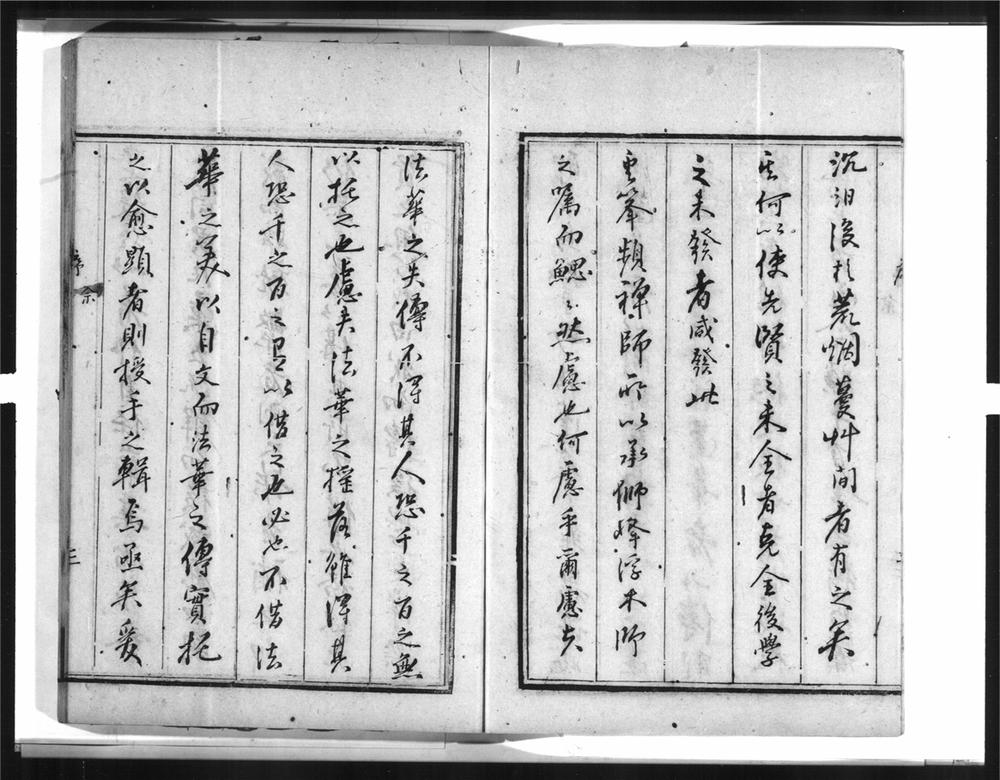 沉汨沒於荒烟蔓艸間者有之矣
其何以使先賢之未全者克全後學
之未發者咸發此
雲峯頻禪師所以承獅峰浮木師
之囑而鰓〻然慮也何慮乎爾慮夫
法華之失傳不得其人恐千之百之無
以托之也慮夫法華之摧落雖得其
人恐千之百之以借之也必也不借法
華之美以自文而法華之傳實托
之以愈顯者則授手之輯焉亟矣爰
序
三